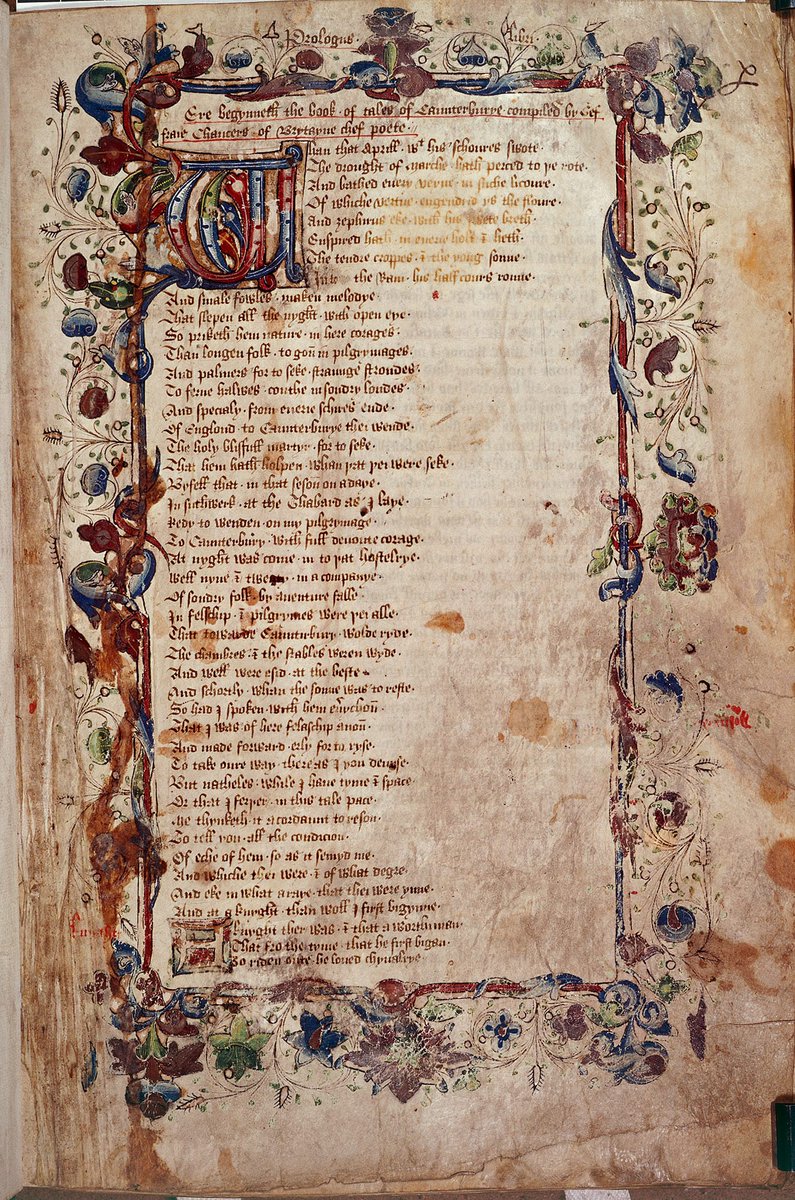 Prologus libri
Ere begynneth the book of tales of Caunterburye compiled by Gef
fraie Chaucers of Brytayne chef poete
Whan that Aprill wt his schoures swote
The drought of Marche hath perced to ye rote
And bathed euery veyne in suche licoure
Of whiche vertue engendrid ys the floure
And zephirus eke with his swete breth
Enspired hath in euerie holt & heth
The tendre croppes & the yong sonne
In to the Ram his half cours ronne
And smale fowles maken melodye
That slepen all the nyght with open eye
So priketh hem nature in here corages
Than longen folk to gon in pilgrymages
And palmers for to seke straunge strondes
To ferne halwes couthe in sondry londes
And specialy from euerie schires ende
Of Englond to Caunterburye thei wende
The holy blissfull martyr for to seke
That hem hath holpen whan yat yei were seke
Byfell that in that seson on a daye
In suthwerk at the Thabard as I laye
Redy to wenden on my pilgrymage
To Caunterbury with full deuoute corage
At nyght was come in to yat hostelrye
Well nyne & twenty in a companye
Of sondry folk by auenture falle
In felschip & pilgrymes were yei alle
That towarde Caunterbury wolde ryde
The chambres & the stables weren wyde
And well were esid at the beste
And schortly whan the sonne was to reste
So had I spoken with hem euerychon
That I was of here felaschip anon
And made forward erly for to ryse
To take oure way there as I you deuise
But natheles while I haue tyme & space
Or that I feryer in this tale pace
Me thynketh it acordaunt to reson
To tell you all the condicion
Of eche of hem so as it semyd me
And whiche thei were & of what degre
And eke in what araye that thei were ynne
And at a knyght than woll I first bigynne
A knyght ther was & that a worthi man
That fro the tyme that he first bigan
To riden oute he loued chyualrye